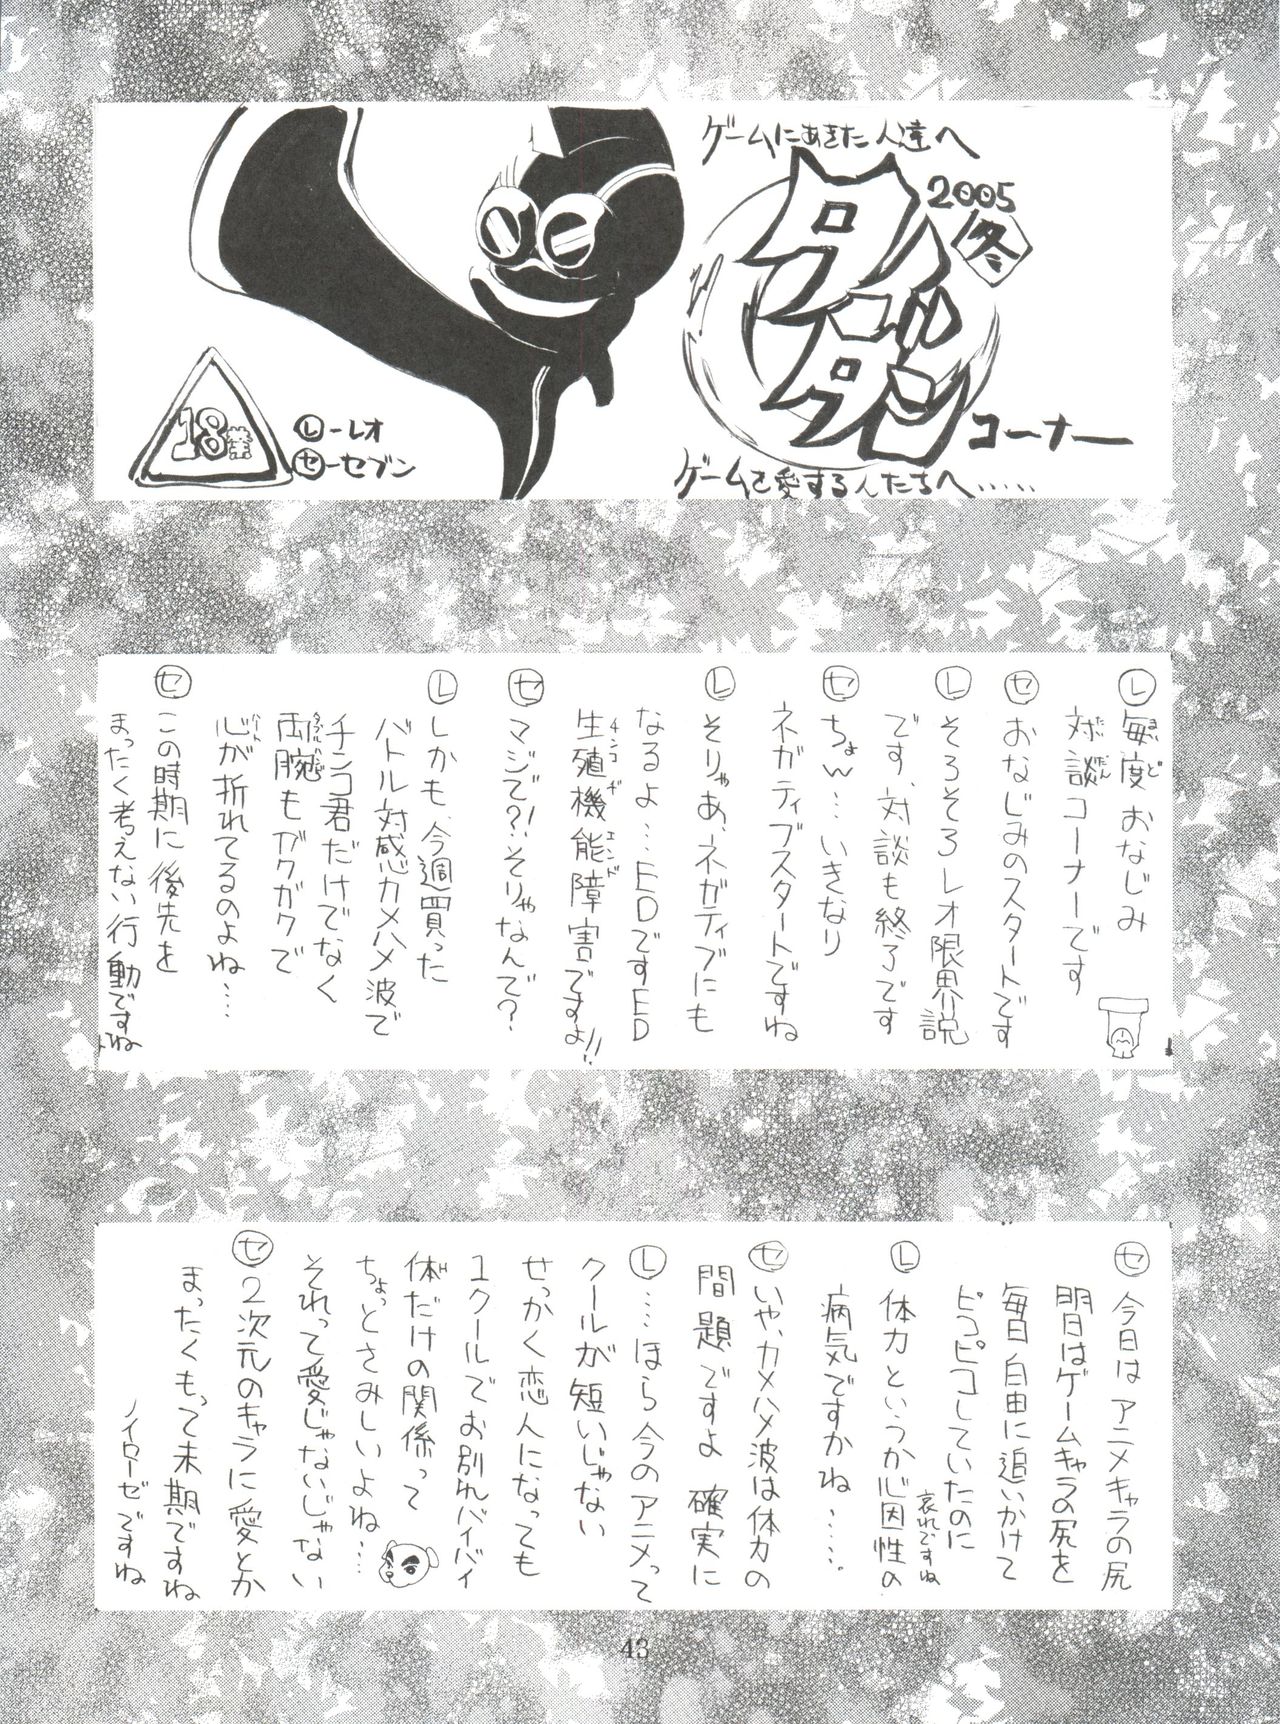 ゲームにあきた人達へ
2005
冬
タイダン
コーナー
ゲームを愛する人たちへ……
18禁
レ-レオ
セ-セブン
レ 毎度おなじみ
対談コーナーです
セ おなじみのスタートです
レ そろそろレオ限界説
です、対談も終了です
セ ちょw…いきなり
ネガティブスタートですね
レ そりゃあ、ネガティブにも
なるよ…EDですED
生殖機能障害ですよ!!
セ マジで?!そりゃなんで?
レ しかも、今週買った
バトル対感カメハメ波で
チンコ君だけでなく
両腕もガクガクで
心が折れてるのよね…
セ この時期に後先を
まったく考えない行動ですね
セ 今日はアニメキャラの尻
明日はゲームキャラの尻を
毎日自由に追いかけて
ピコピコしていたのに
哀れですね
レ 体力というか心因性の
病気ですかね……
セ いや、カメハメ波は体力の
問題ですよ 確実に
レ …ほら今のアニメって
クールが短いじゃない
せっかく恋人になっても
1クールでお別れバイバイ
体だけの関係って
ちょっとさみしいよね…
それって愛じゃないじゃない
セ 2次元のキャラに愛とか
まったくもって末期ですね
ノイローゼですね
43